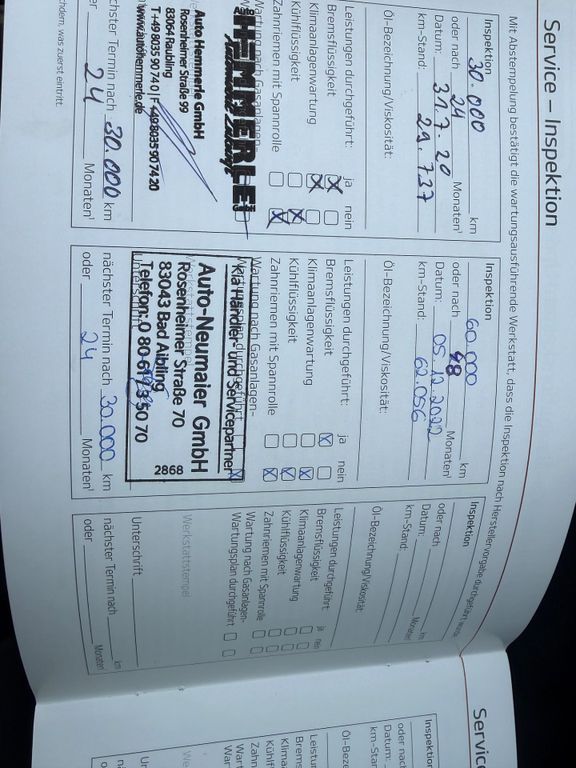 Service – Inspektion
Mit Abstempelung bestätigt die wartungsausführende Werkstatt, dass die Inspektion nach Herstellervorgabe durchgeführt wurde
Inspektion
30.000 km
oder nach 24 Monaten¹
Datum: 31.7.20
km-Stand: 29.737
Öl-Bezeichnung/Viskosität:
Leistungen durchgeführt: ja nein
Bremsflüssigkeit
Klimaanlagenwartung
Kühlflüssigkeit
Zahnriemen mit Spannrolle
Wartung nach Gasanlagen-
HEMMERLE
Auto Hemmerle GmbH
Rosenheimer Straße 99
83064 Raubling
T +49 8035 90 74 0 | F +49 8035 90 74 20
www.autohemmerle.de
chster Termin nach 30.000 km
er 24 Monaten¹
chdem, was zuerst eintritt.
Inspektion
60.000 km
oder nach 48 Monaten¹
Datum: 05.12.2022
km-Stand: 62.056
Öl-Bezeichnung/Viskosität:
Leistungen durchgeführt: ja nein
Bremsflüssigkeit
Klimaanlagenwartung
Kühlflüssigkeit
Zahnriemen mit Spannrolle
Wartung nach Gasanlagen-
Wartungsplan durchgeführt
Kia Händler- und Servicepartner
Auto-Neumaier GmbH
Rosenheimer Straße 70
83043 Bad Aibling
Telefon: 0 80 61/3 50 70
2868
nächster Termin nach 30.000 km
oder 24 Monaten¹
Inspektion
km
oder nach Monaten¹
Datum:
km-Stand:
Öl-Bezeichnung/Viskosität:
Leistungen durchgeführt: ja nein
Bremsflüssigkeit
Klimaanlagenwartung
Kühlflüssigkeit
Zahnriemen mit Spannrolle
Wartung nach Gasanlagen-
Wartungsplan durchgeführt
Werkstattstempel
Unterschrift
nächster Termin nach km
oder Monaten¹
Servic
Inspektion
oder nach
Datum:
km-Stan
Öl-Bez
Leistu
Brem
Klima
Kühl
Zahn
Wart
War
We
Unter
näc
oder